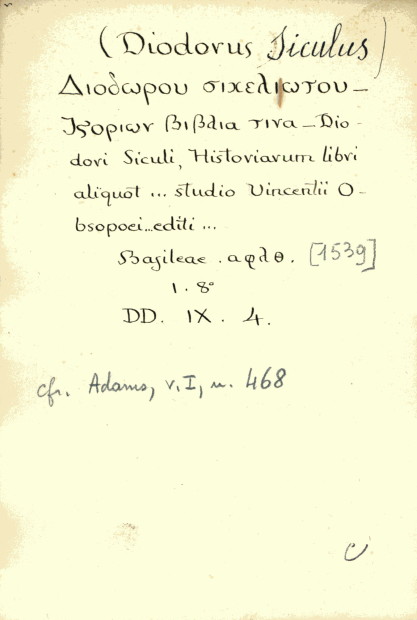 (Diodorus Siculus)
Διοδωρου σικελιωτου –
Ἱϛοριων βιβλια τινα – Dio-
dori Siculi, Historiarum libri
aliquot ... studio Vincentii O-
bsopoei...editi ...
Basileae . αφλθ . [1539]
1 . 8º
DD . IX . 4 .
cfr. Adams, v. I, n. 468